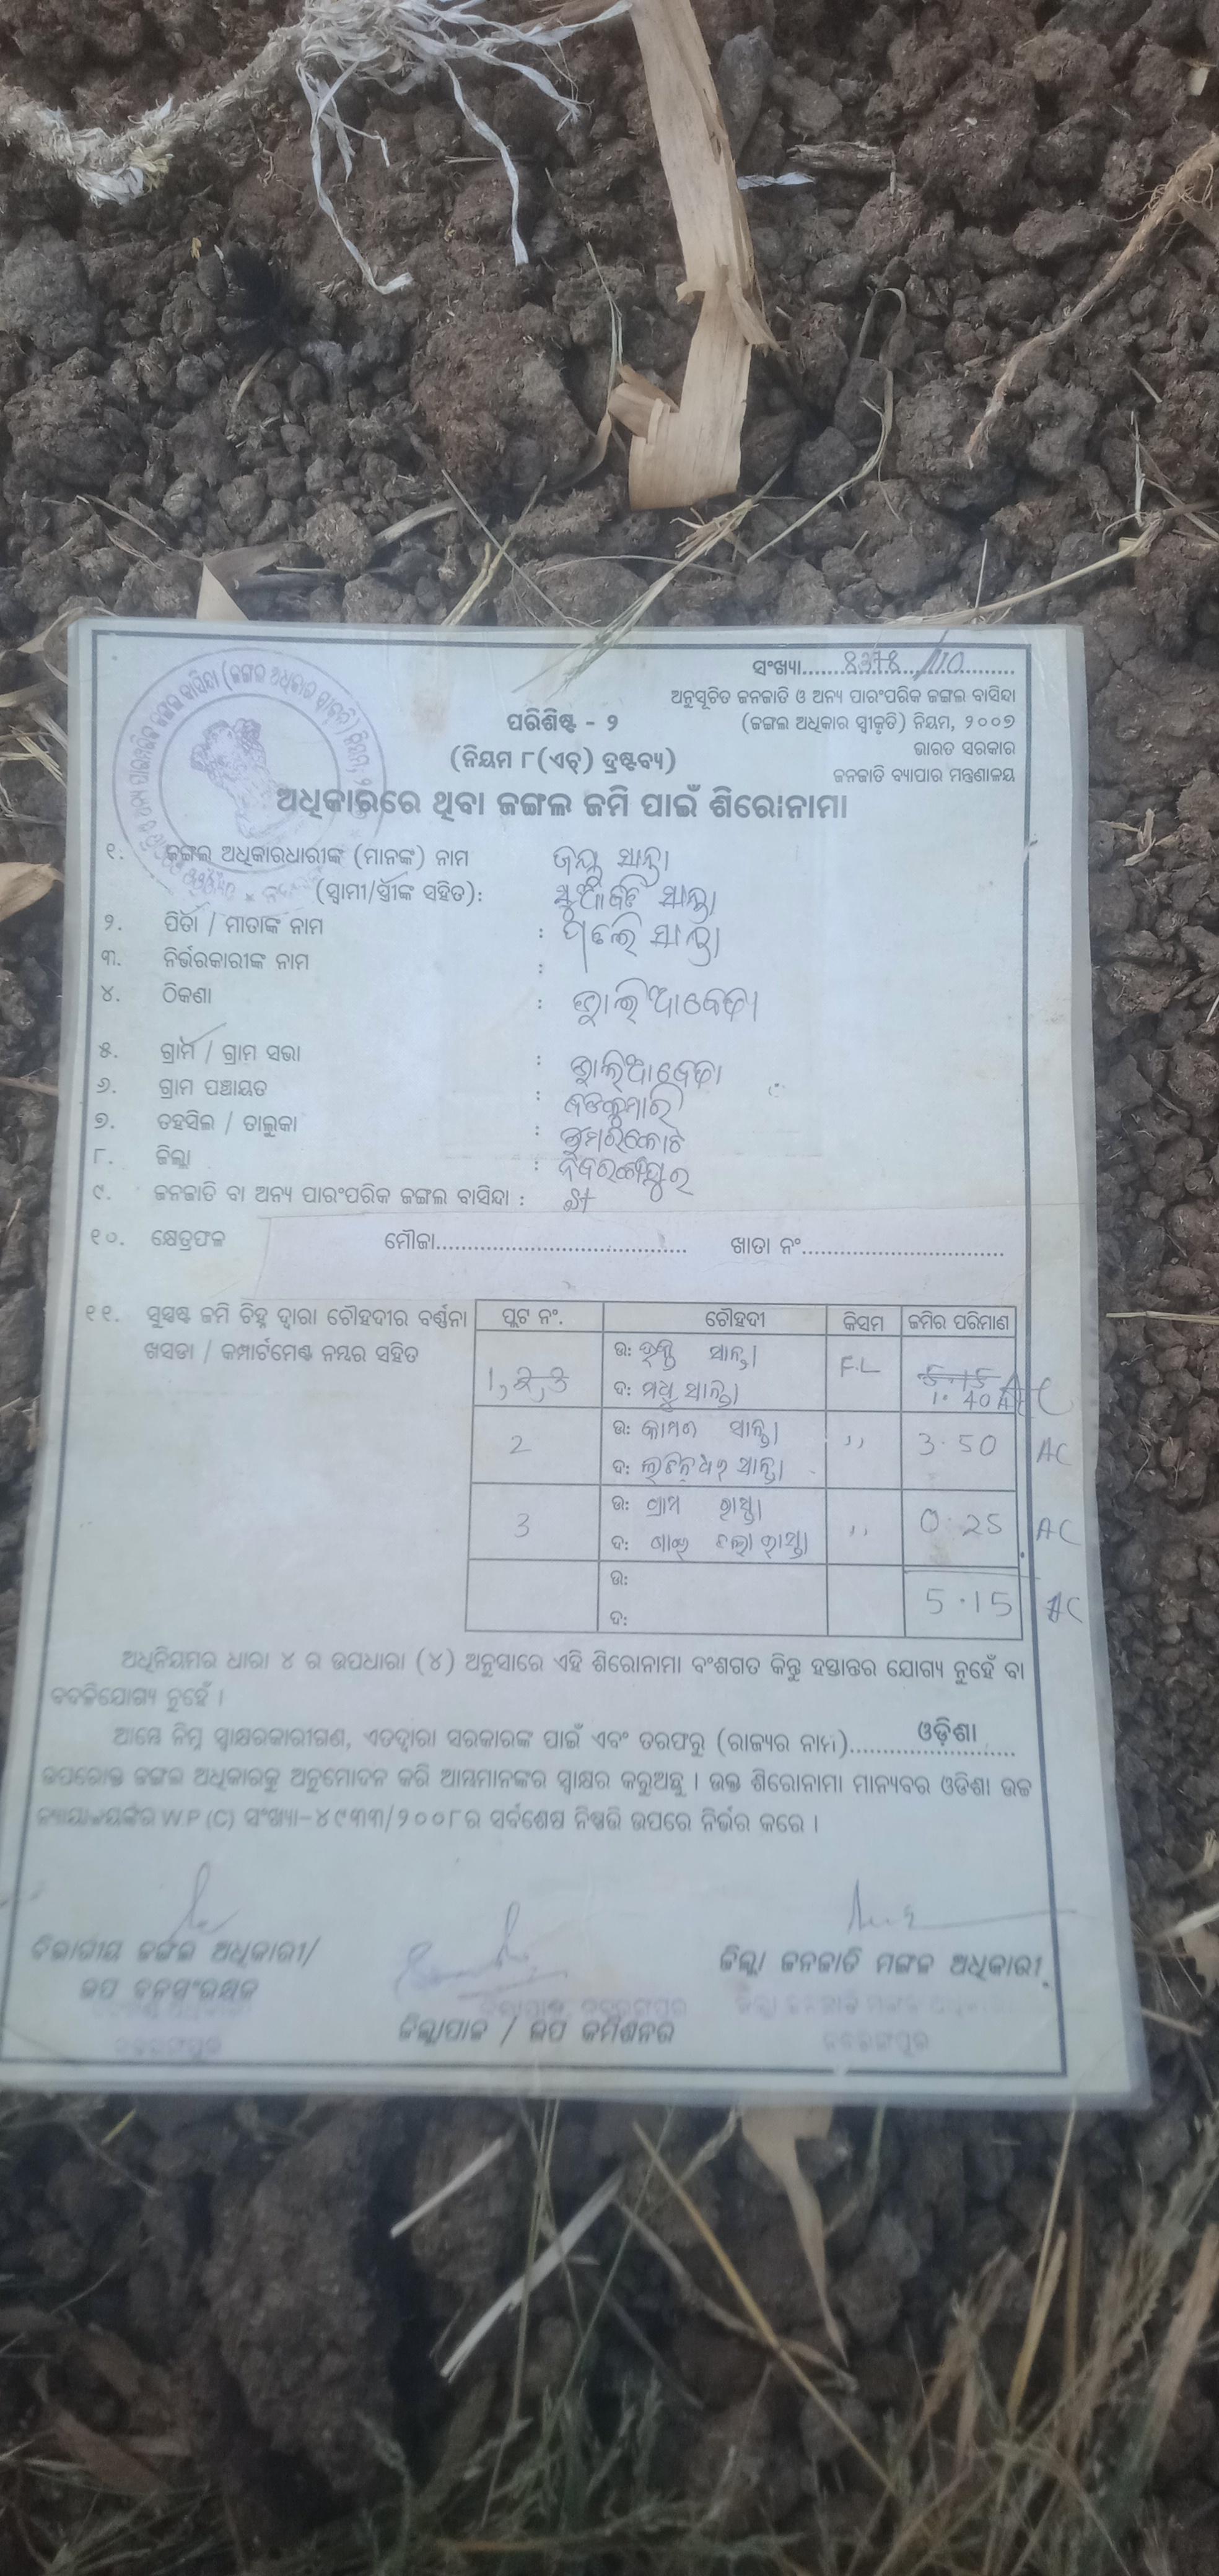 ସଂଖ୍ୟା.....8378/10.....
ଅନୁସୂଚିତ ଜନଜାତି ଓ ଅନ୍ୟ ପାରଂପରିକ ଜଙ୍ଗଲ ବାସିନ୍ଦା
(ଜଙ୍ଗଲ ଅଧିକାର ସ୍ୱୀକୃତି) ନିୟମ, ୨୦୦୭
ଭାରତ ସରକାର
ଜନଜାତି ବ୍ୟାପାର ମନ୍ତ୍ରଣାଳୟ
ପରିଶିଷ୍ଟ - ୨
(ନିୟମ ୮(ଏଚ୍) ଦ୍ରଷ୍ଟବ୍ୟ)
ଅଧିକାରରେ ଥିବା ଜଙ୍ଗଲ ଜମି ପାଇଁ ଶିରୋନାମା
୧. ଜଙ୍ଗଲ ଅଧିକାରଧାରୀଙ୍କ (ମାନଙ୍କ) ନାମ ସାନ୍ତା
(ସ୍ୱାମୀ/ସ୍ତ୍ରୀଙ୍କ ସହିତ): ସାନ୍ତା
୨. ପିତା / ମାତାଙ୍କ ନାମ : ସାନ୍ତା
୩. ନିର୍ଭରକାରୀଙ୍କ ନାମ :
୪. ଠିକଣା :
୫. ଗ୍ରାମ / ଗ୍ରାମ ସଭା :
୬. ଗ୍ରାମ ପଞ୍ଚାୟତ : ବଡକୁମାରି
୭. ତହସିଲ / ତାଲୁକା : ଉମରକୋଟ
୮. ଜିଲ୍ଲା : ନବରଙ୍ଗପୁର
୯. ଜନଜାତି ବା ଅନ୍ୟ ପାରଂପରିକ ଜଙ୍ଗଲ ବାସିନ୍ଦା : ST
୧୦. କ୍ଷେତ୍ରଫଳ ମୌଜା.......... ଖାତା ନଂ..........
୧୧. ସୁସ୍ପଷ୍ଟ ଜମି ଚିହ୍ନ ଦ୍ୱାରା ଚୌହଦୀର ବର୍ଣ୍ଣନା
ଖସଡା / କମ୍ପାର୍ଟମେଣ୍ଟ ନମ୍ବର ସହିତ
ପ୍ଲଟ ନଂ. ଚୌହଦୀ କିସମ ଜମିର ପରିମାଣ
ଉ: ସାନ୍ତା
1, 2, 3 F.L 5.15 AC
ଦ: ମଧୁ ସାନ୍ତା 1.40 AC
ଉ: ସାନ୍ତା
2 ,, 3.50 AC
ଦ: ସାନ୍ତା
ଉ: ଗ୍ରାମ ରାସ୍ତା
3 ,, 0.25 AC
ଦ: ଗାଈ ଚଲା ରାସ୍ତା
ଉ:
5.15 AC
ଦ:
ଅଧିନିୟମର ଧାରା ୪ ର ଉପଧାରା (୪) ଅନୁସାରେ ଏହି ଶିରୋନାମା ବଂଶଗତ କିନ୍ତୁ ହସ୍ତାନ୍ତର ଯୋଗ୍ୟ ନୁହେଁ ବା
ବଦଳିଯୋଗ୍ୟ ନୁହେଁ ।
ଆମ୍ଭେ ନିମ୍ନ ସ୍ୱାକ୍ଷରକାରୀଗଣ, ଏତଦ୍ୱାରା ସରକାରଙ୍କ ପାଇଁ ଏବଂ ତରଫରୁ (ରାଜ୍ୟର ନାମ).....ଓଡ଼ିଶା.....
ଉପରୋକ୍ତ ଜଙ୍ଗଲ ଅଧିକାରକୁ ଅନୁମୋଦନ କରି ଆମ୍ଭମାନଙ୍କର ସ୍ୱାକ୍ଷର କରୁଅଛୁ । ଉକ୍ତ ଶିରୋନାମା ମାନ୍ୟବର ଓଡିଶା ଉଚ୍ଚ
ନ୍ୟାୟାଳୟଙ୍କର W.P (C) ସଂଖ୍ୟା-୪୯୩୩/୨୦୦୮ର ସର୍ବଶେଷ ନିଷ୍ପତ୍ତି ଉପରେ ନିର୍ଭର କରେ ।
ବିଭାଗୀୟ ଜଙ୍ଗଲ ଅଧିକାରୀ/
ଉପ ବନସଂରକ୍ଷକ
ଜିଲ୍ଲାପାଳ / ଉପ କମିଶନର
ଜିଲ୍ଲା ଜନଜାତି ମଙ୍ଗଳ ଅଧିକାରୀ
ନବରଙ୍ଗପୁର